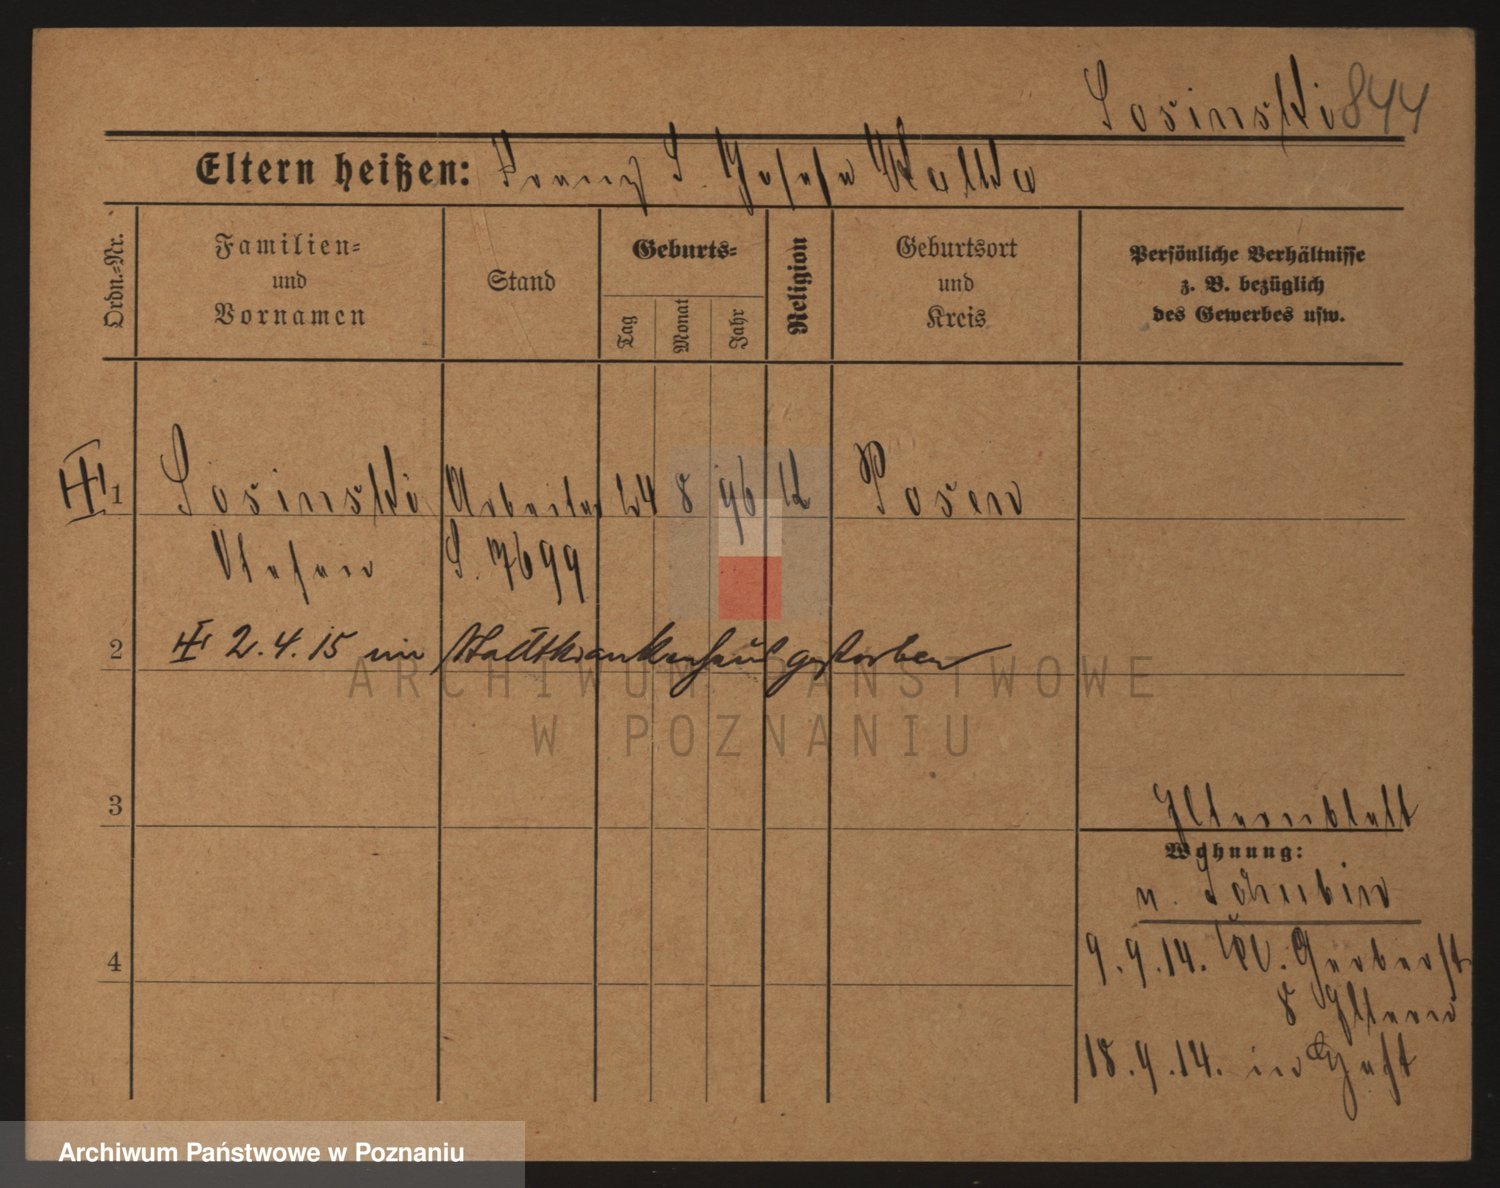 Sosinski 844
Eltern heißen: Franz S. Josefa Walka
Ordn.-Nr.
Familien-
und
Vornamen
Stand
Geburts-
Tag
Monat
Jahr
Religion
Geburtsort
und
Kreis
Persönliche Verhältnisse
z. B. bezüglich
des Gewerbes usw.
1 Sosinski Arbeiter 24 8 96 k Posen
Stefan S. 7699
2 2.4.15 im Stadtkrankenhaus gestorben
ARCHIWUM PAŃSTWOWE
W POZNANIU
3
Elternblatt
Wohnung:
n. Schubin
9.9.14. W. Gerberst
8 Eltern
4
18.9.14. in Haft
Archiwum Państwowe w Poznaniu